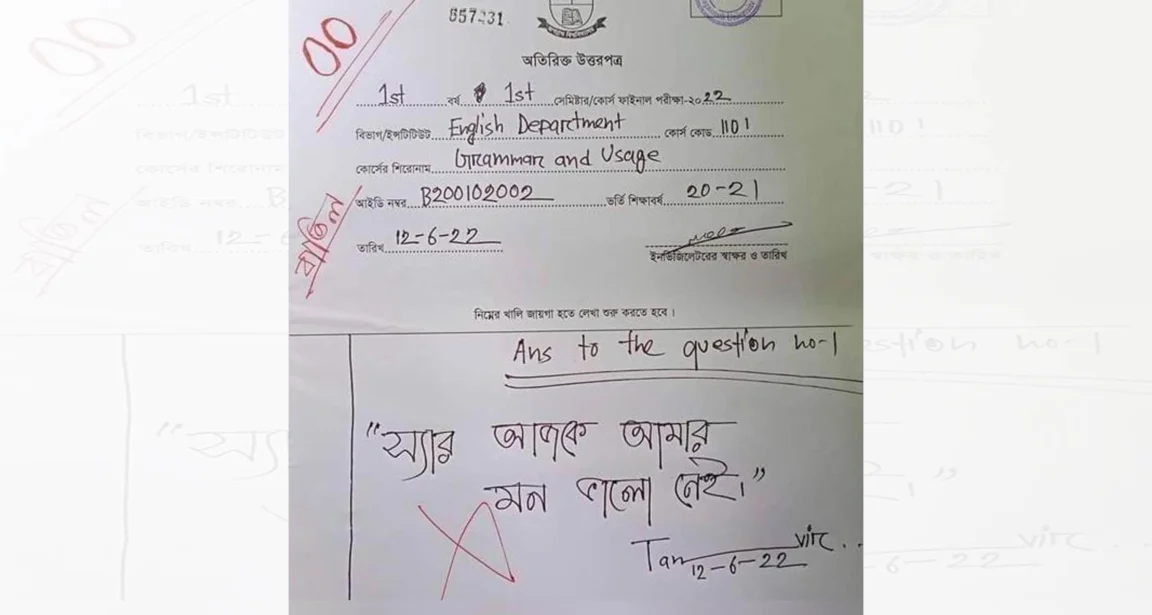 857231
00
অতিরিক্ত উত্তরপত্র
1st বর্ষ 1st সেমিষ্টার/কোর্স ফাইনাল পরীক্ষা-২০22
বিভাগ/ইন্সটিটিউট English Department কোর্স কোড 1101
কোর্সের শিরোনাম Grammar and Usage
আইডি নম্বর B200102002 ভর্তি শিক্ষাবর্ষ 20-21
বাতিল
তারিখ 12-6-22
ইনভিজিলেটরের স্বাক্ষর ও তারিখ
নিম্নের খালি জায়গা হতে লেখা শুরু করতে হবে।
Ans to the question no-1
"স্যার আজকে আমার
মন ভালো নেই।"
Tan vir
12-6-22